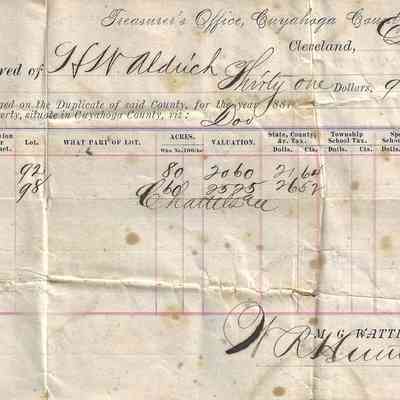 Treasurer's Office, Cuyahoga Coun
Cleveland,
ved of H W Aldrich Thirty one Dollars, 9
ged on the Duplicate of said County, for the year 188
erty, situate in Cuyahoga County, viz: Dod
Lot. WHAT PART OF LOT. ACRES. VALUATION. State, County, &c. Tax. Township School Tax. Spe Scho
Dolls. Cts. Dolls. Cts. Dolls.
92 80 2060 21,64
98 60 2525 2652
Chattels
M. G. WATT